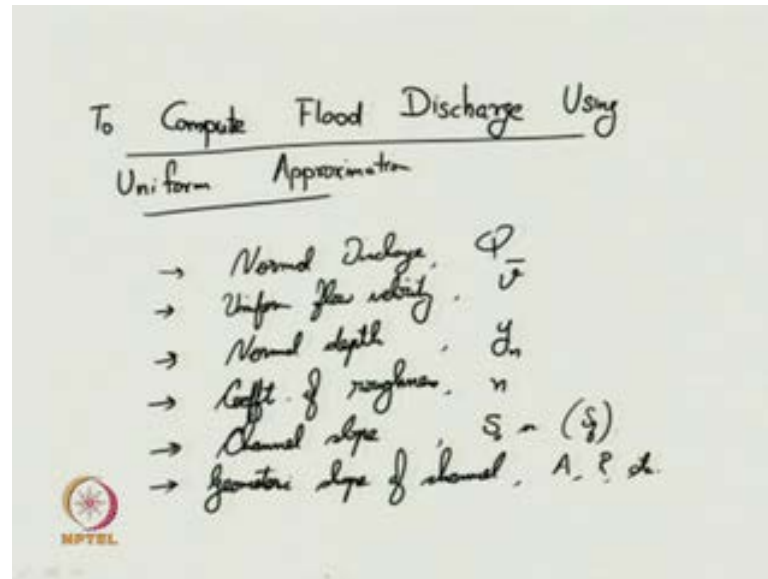 To Compute Flood Discharge Using
Uniform Approximation
→ Normal Discharge, Q
→ Uniform flow velocity, v̅
→ Normal depth, yn
→ Coefft. of roughness, n
→ Channel slope, S0 ~ (Sf)
→ Geometric slope of channel, A, P, etc.
NPTEL